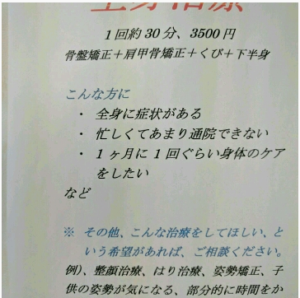 全身治療
1回約30分、3500円
骨盤矯正＋肩甲骨矯正＋くび＋下半身
こんな方に
・ 全身に症状がある
・ 忙しくてあまり通院できない
・ 1ヶ月に1回ぐらい身体のケア
をしたい
など
※ その他、こんな治療をしてほしい、と
いう希望があれば、ご相談ください。
例）、整顔治療、はり治療、姿勢矯正、子
供の姿勢が気になる、部分的に時間をか